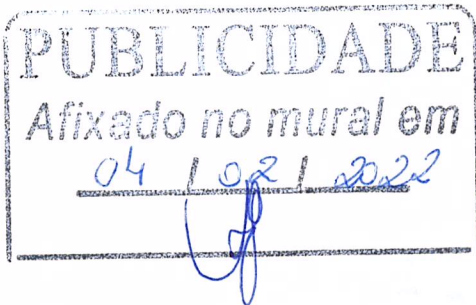 PUBLICIDADE
Afixado no mural em
04 / 02 / 2022